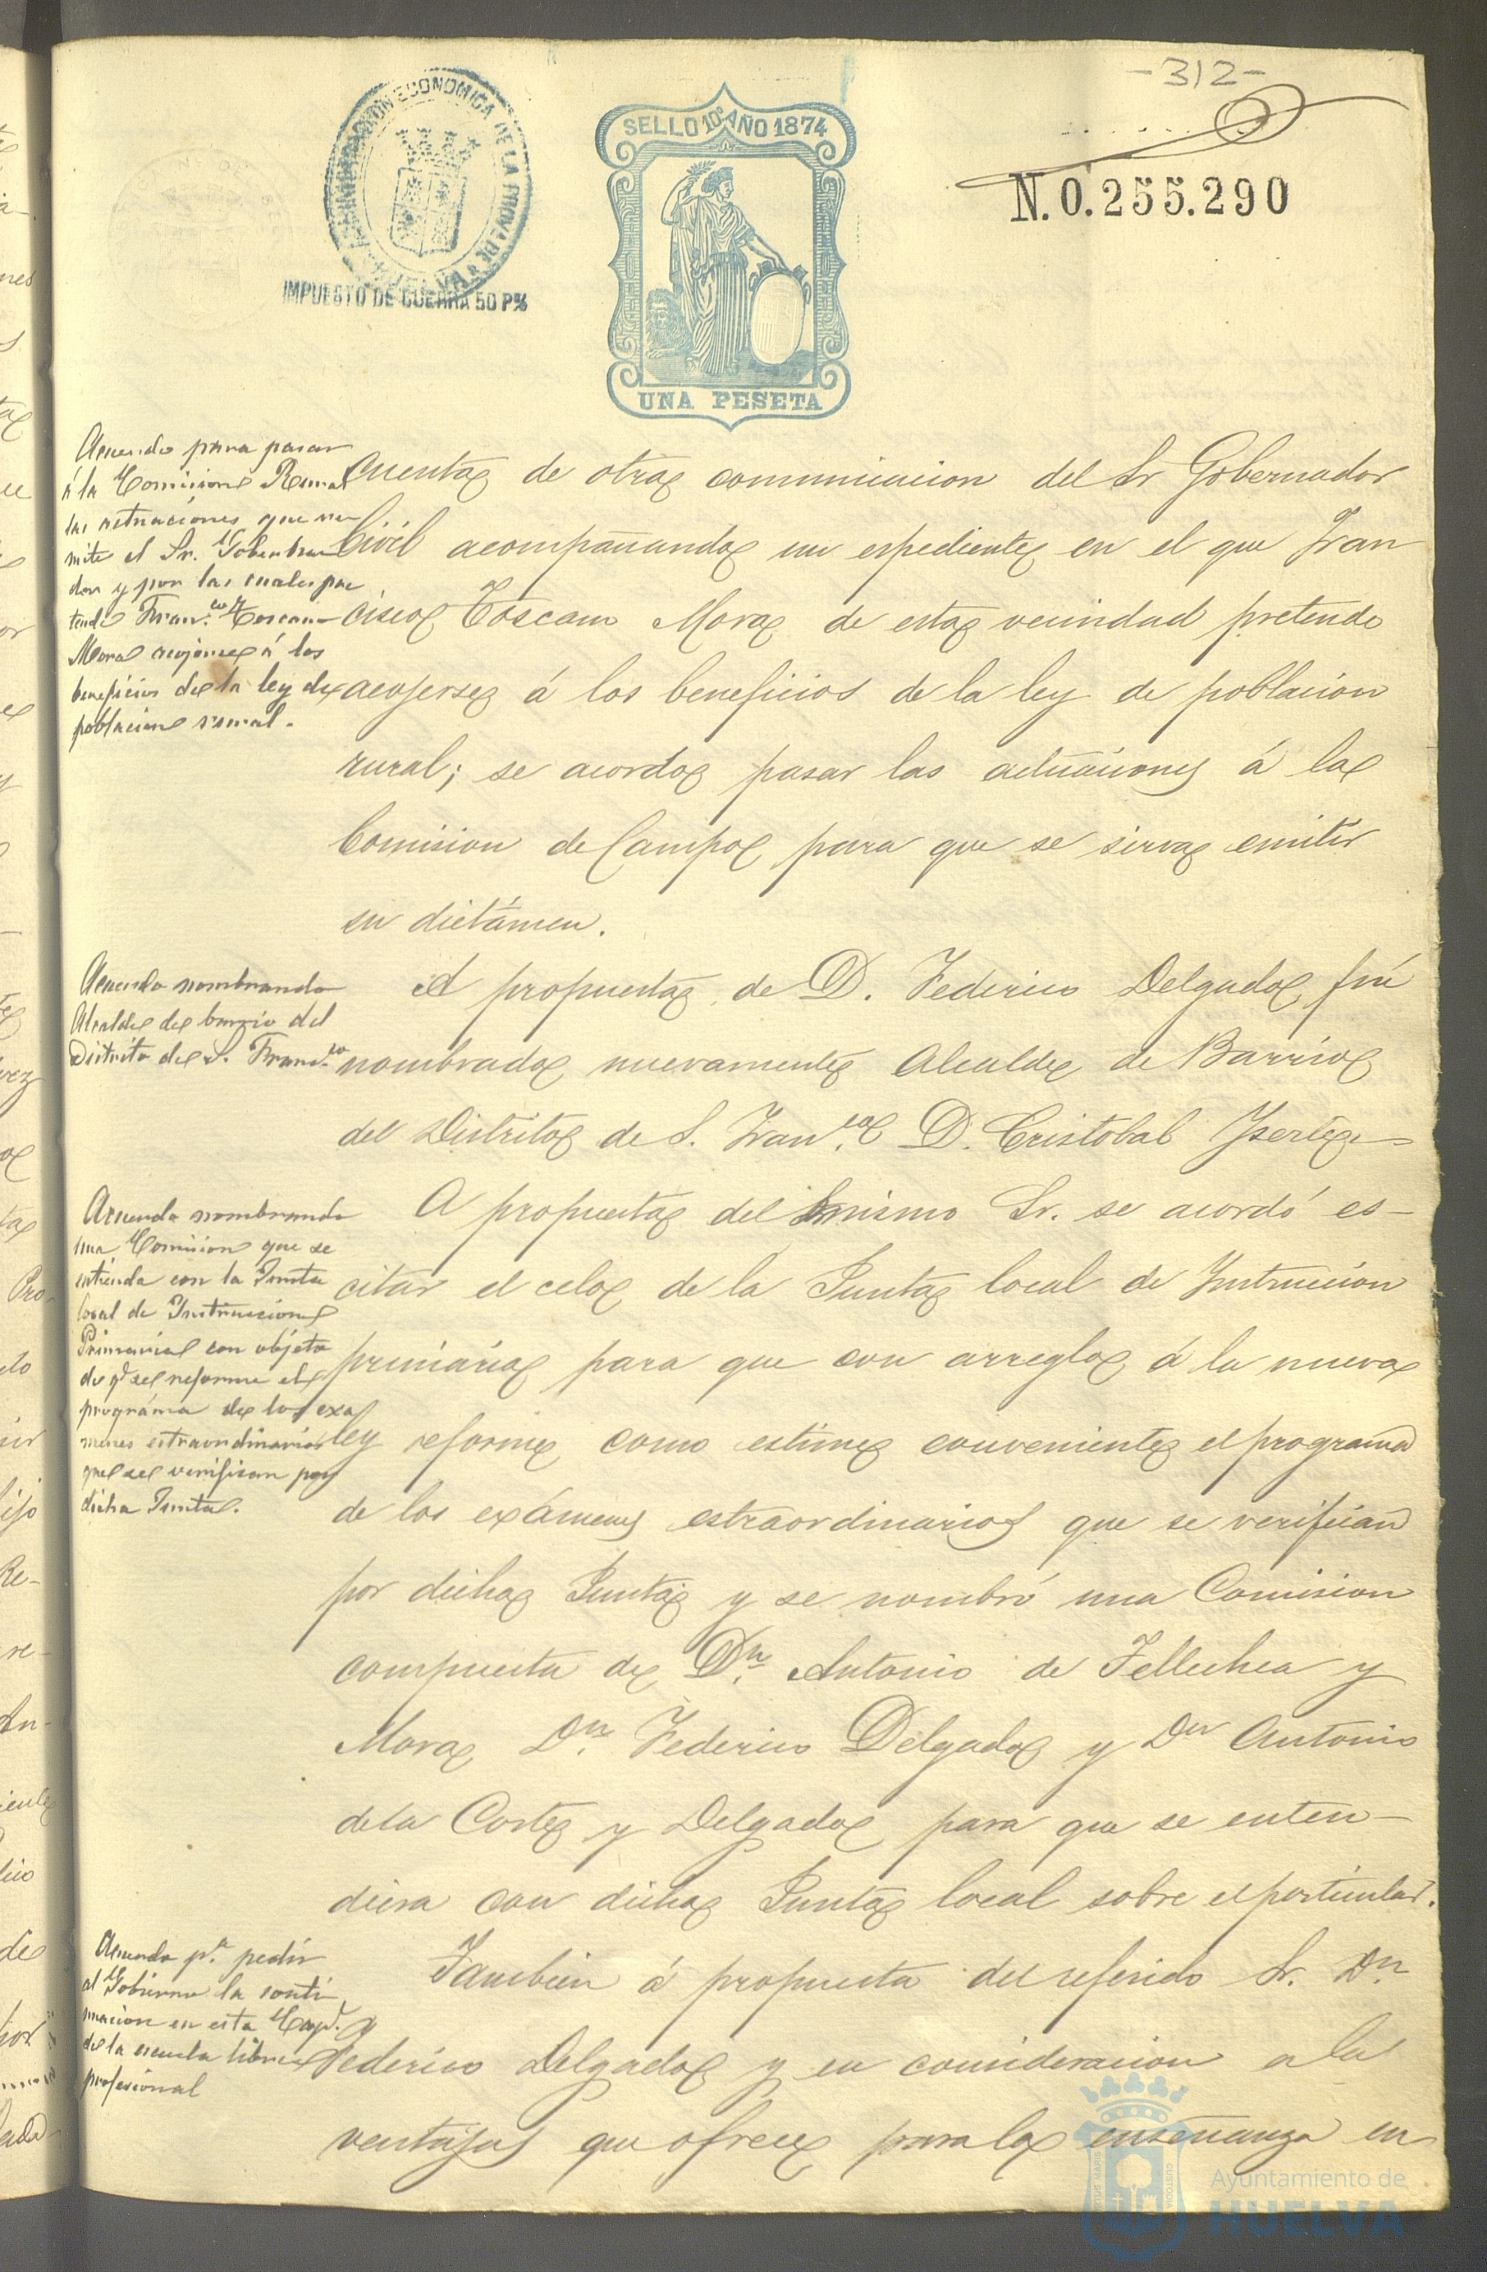 -312-
ADMINISTRACION ECONOMICA DE LA PROV.A DE HUELVA
IMPUESTO DE GUERRA 50 P%
SELLO 10º AÑO 1874
UNA PESETA
N. 0.255.290
Acuerdo para pasar
á la Comision Rural
las actuaciones que re-
mite el Sr. Goberna
dor y por las cuales pre
tende Fran.co Toscano
Mora acojerse á los
beneficios de la ley de
poblacion rural.
cuenta de otra comunicacion del Sr Gobernador
Civil acompañando un espediente en el que Fran
cisco Toscano Mora de esta vecindad pretende
acojerse á los beneficios de la ley de poblacion
rural; se acordo pasar las actuaciones á la
Comision de Campo para que se sirva emitir
su dictámen.
Acuerdo nombrando
Alcalde de barrio del
Distrito de S. Fran.co
A propuesta de D. Federico Delgado fué
nombrado nuevamente Alcalde de Barrio
del Distrito de S. Fran.co D. Cristobal
Acuerdo nombrando
una Comision que se
entienda con la Junta
local de Instruccion
Primaria con objeto
de q.e se reforme el
prográma de los exa
menes estraordinarios
que se verifican por
dicha Junta.
A propuesta del mismo Sr. se acordó es-
citar el celo de la Junta local de Instruccion
primaria para que con arreglo á la nueva
ley reforme como estime conveniente el programa
de los exámenes estraordinarios que se verifican
por dicha Junta y se nombró una Comision
compuesta de Dn. Antonio de Tellechea y
Mora, Dn. Federico Delgado y Dn Antonio
de la Corte y Delgado para que se enten-
diera con dicha Junta local sobre el particular.
Acuerdo p.a pedir
al Gobierno la conti
nuacion en esta Cap.l
de la escuela libre
profesional
Tambien á propuesta del referido Sr. Dn
Federico Delgado y en consideracion a las
ventajas que ofrece para la enseñanza en
Ayuntamiento de
HUELVA